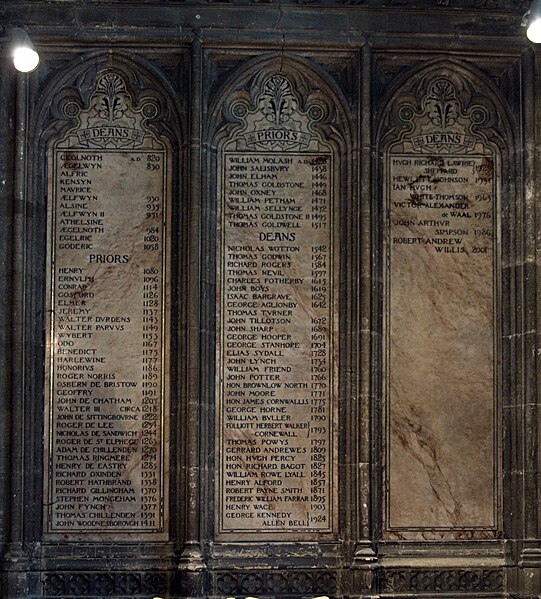 DEANS
CEOLNOTH A.D 820
ÆGELWYN 830
ALFRIC
KENSYN
MAVRICE
ÆLFWYN 930
ALSINE 935
ÆLFWYN II 951
ATHELSINE
ÆGELNOTH 984
EGELRIC 1020
GODERIC 1058
PRIORS
HENRY 1080
ERNVLPH 1096
CONRAD 1114
GOSFORD 1126
ELMER 1128
JEREMY 1137
WALTER DVRDENS 1143
WALTER PARVVS 1149
WYBERT 1153
ODO 1167
BENEDICT 1175
HARLEWINE 1177
HONORIVS 1186
ROGER NORRIS 1189
OSBERN DE BRISTOW 1190
GEOFFRY 1191
JOHN DE CHATHAM 1205
WALTER III CIRCA 1218
JOHN DE SITTINGBOVRNE 1222
ROGER DE LEE
NICHOLAS DE SANDWICH 1244
ROGER DE ST ELPHEGE 1263
ADAM DE CHILLENDEN 1270
THOMAS RINGMERE 1274
HENRY DE EASTRY 1285
RICHARD OXINDEN 1331
ROBERT HATHBRAND 1338
RICHARD GILLINGHAM 1370
STEPHEN MONGEHAM 1376
JOHN FYNCH 1377
THOMAS CHILLENDEN 1391
JOHN WOODNESBOROVGH 1411
PRIORS
WILLIAM MOLASH A.D 1428
JOHN SALISBVRY 1438
JOHN ELHAM 1446
THOMAS GOLDSTONE 1449
JOHN OXNEY 1468
WILLIAM PETHAM 1471
WILLIAM SELLYNGE 1472
THOMAS GOLDSTONE II 1495
THOMAS GOLDWELL 1517
DEANS
NICHOLAS WOTTON 1542
THOMAS GODWIN 1567
RICHARD ROGERS 1584
THOMAS NEVIL 1597
CHARLES FOTHERBY 1615
JOHN BOYS 1619
ISAAC BARGRAVE 1625
GEORGE AGLIONBY 1642
THOMAS TVRNER
JOHN TILLOTSON 1672
JOHN SHARP 1689
GEORGE HOOPER 1691
GEORGE STANHOPE 1704
ELIAS SYDALL 1728
JOHN LYNCH 1734
WILLIAM FRIEND 1760
JOHN POTTER 1766
HON BROWNLOW NORTH 1770
JOHN MOORE 1771
HON JAMES CORNWALLIS 1775
GEORGE HORNE 1781
WILLIAM BVLLER 1790
FOLLIOTT HERBERT WALKER
CORNEWALL 1793
THOMAS POWYS 1797
GERRARD ANDREWES 1809
HON HVGH PERCY 1825
HON RICHARD BAGOT 1827
WILLIAM ROWE LYALL 1845
HENRY ALFORD 1857
ROBERT PAYNE SMITH 1871
FREDERIC WILLIAM FARRAR 1895
HENRY WACE 1903
GEORGE KENNEDY
ALLEN BELL 1924
DEANS
HVGH RICHARD LAWRIE
SHEPPARD 1929
HEWLETT JOHNSON 1931
IAN HVGH
WHITE-THOMSON 1963
VICTOR ALEXANDER
de WAAL 1976
JOHN ARTHVR
SIMPSON 1986
ROBERT ANDREW
WILLIS 2001